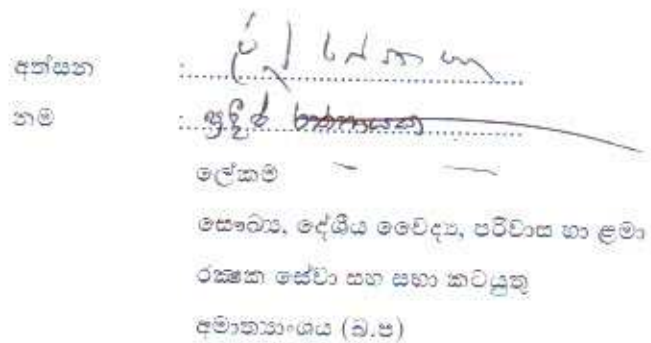 අත්සන :
නම : ප්‍රදීප් රත්නායක
ලේකම්
සෞඛ්‍ය, දේශීය වෛද්‍ය, පරිවාස හා ළමා
රක්ෂක සේවා සහ සභා කටයුතු
අමාත්‍යාංශය (බ.ප)